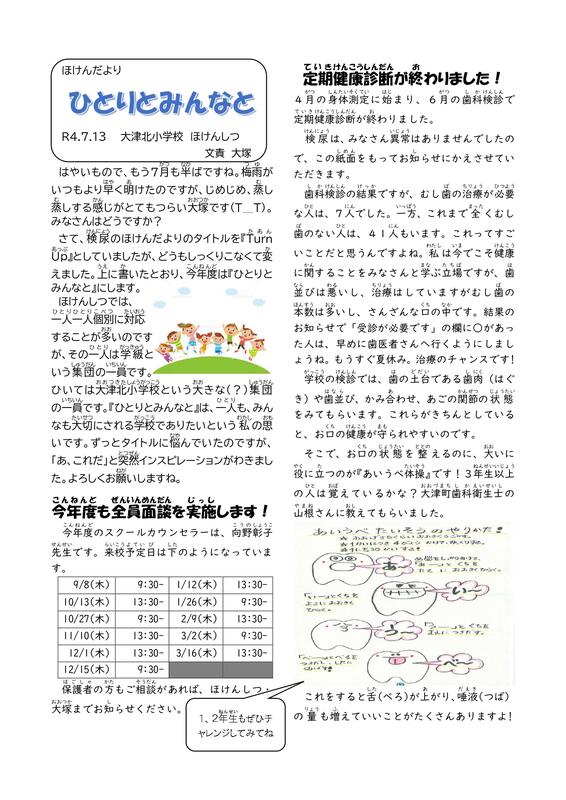 ほけんだより
ひとりとみんなと
R4.7.13 大津北小学校 ほけんしつ
文責 大塚
はやいもので、もう7月も半ばですね。梅雨が
いつもより早く明けたのですが、じめじめ、蒸し
蒸しする感じがとてもつらい大塚です(T_T)。
みなさんはどうですか？
さて、検尿のほけんだよりのタイトルを『Turn
Up』としていましたが、どうもしっくりこなくて変
えました。上に書いたとおり、今年度は『ひとりと
みんなと』にします。
ほけんしつでは、
一人一人個別に対応
することが多いのです
が、その一人は学級と
いう集団の一員です。
ひいては大津北小学校という大きな(？)集団
の一員です。『ひとりとみんなと』は、一人も、みん
なも大切にされる学校でありたいという私の思
いです。ずっとタイトルに悩んでいたのですが、
「あ、これだ」と突然インスピレーションがわきまし
た。よろしくお願いしますね。
今年度も全員面談を実施します！
今年度のスクールカウンセラーは、向野彰子
先生です。来校予定日は下のようになっていま
す。
9/8(木) 9:30- 1/12(木) 13:30-
10/13(木) 13:30- 1/26(木) 9:30-
10/27(木) 9:30- 2/9(木) 13:30-
11/10(木) 13:30- 3/2(木) 9:30-
12/1(木) 13:30- 3/16(木) 13:30-
12/15(木) 9:30-
保護者の方もご相談があれば、ほけんしつ・
大塚までお知らせください。
定期健康診断が終わりました！
4月の身体測定に始まり、6月の歯科検診で
定期健康診断が終わりました。
検尿は、みなさん異常はありませんでしたの
で、この紙面をもってお知らせにかえさせてい
ただきます。
歯科検診の結果ですが、むし歯の治療が必要
な人は、7人でした。一方、これまで全くむし
歯のない人は、41人もいます。これってすご
いことだと思うんですよね。私は今でこそ健康
に関することをみなさんと学ぶ立場ですが、歯
並びは悪いし、治療はしていますがむし歯の
本数は多いし、さんざんな口の中です。結果の
お知らせで「受診が必要です」の欄に〇があっ
た人は、早めに歯医者さんへ行くようにしまし
ょうね。もうすぐ夏休み。治療のチャンスです！
学校の検診では、歯の土台である歯肉(はぐ
き)や歯並び、かみ合わせ、あごの関節の状態
をみてもらいます。これらがきちんとしている
と、お口の健康が守られやすいのです。
そこで、お口の状態を整えるのに、大いに
役に立つのが『あいうべ体操』です！3年生以上
の人は覚えているかな？大津町歯科衛生士の
山根さんに教えてもらいました。
あいうべたいそうのやりかた！
あ〜
い〜
う〜
べ〜
これをすると舌(べろ)が上がり、唾液(つば)
の量も増えていいことがたくさんありますよ！
1、2年生もぜひチ
ャレンジしてみてね